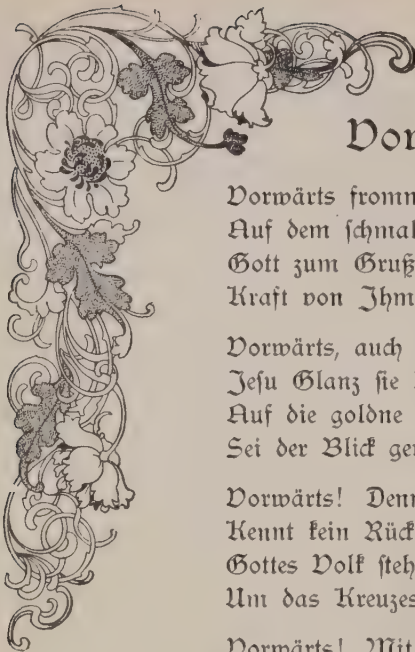 Vor
Vorwärts fromm
Auf dem schmal
Gott zum Gruß
Kraft von Ihm
Vorwärts, auch
Jesu Glanz sie
Auf die goldne
Sei der Blick ger
Vorwärts! Denn
Kennt kein Rück
Gottes Volk steh
Um das Kreuzes
Vorwärts! Mit